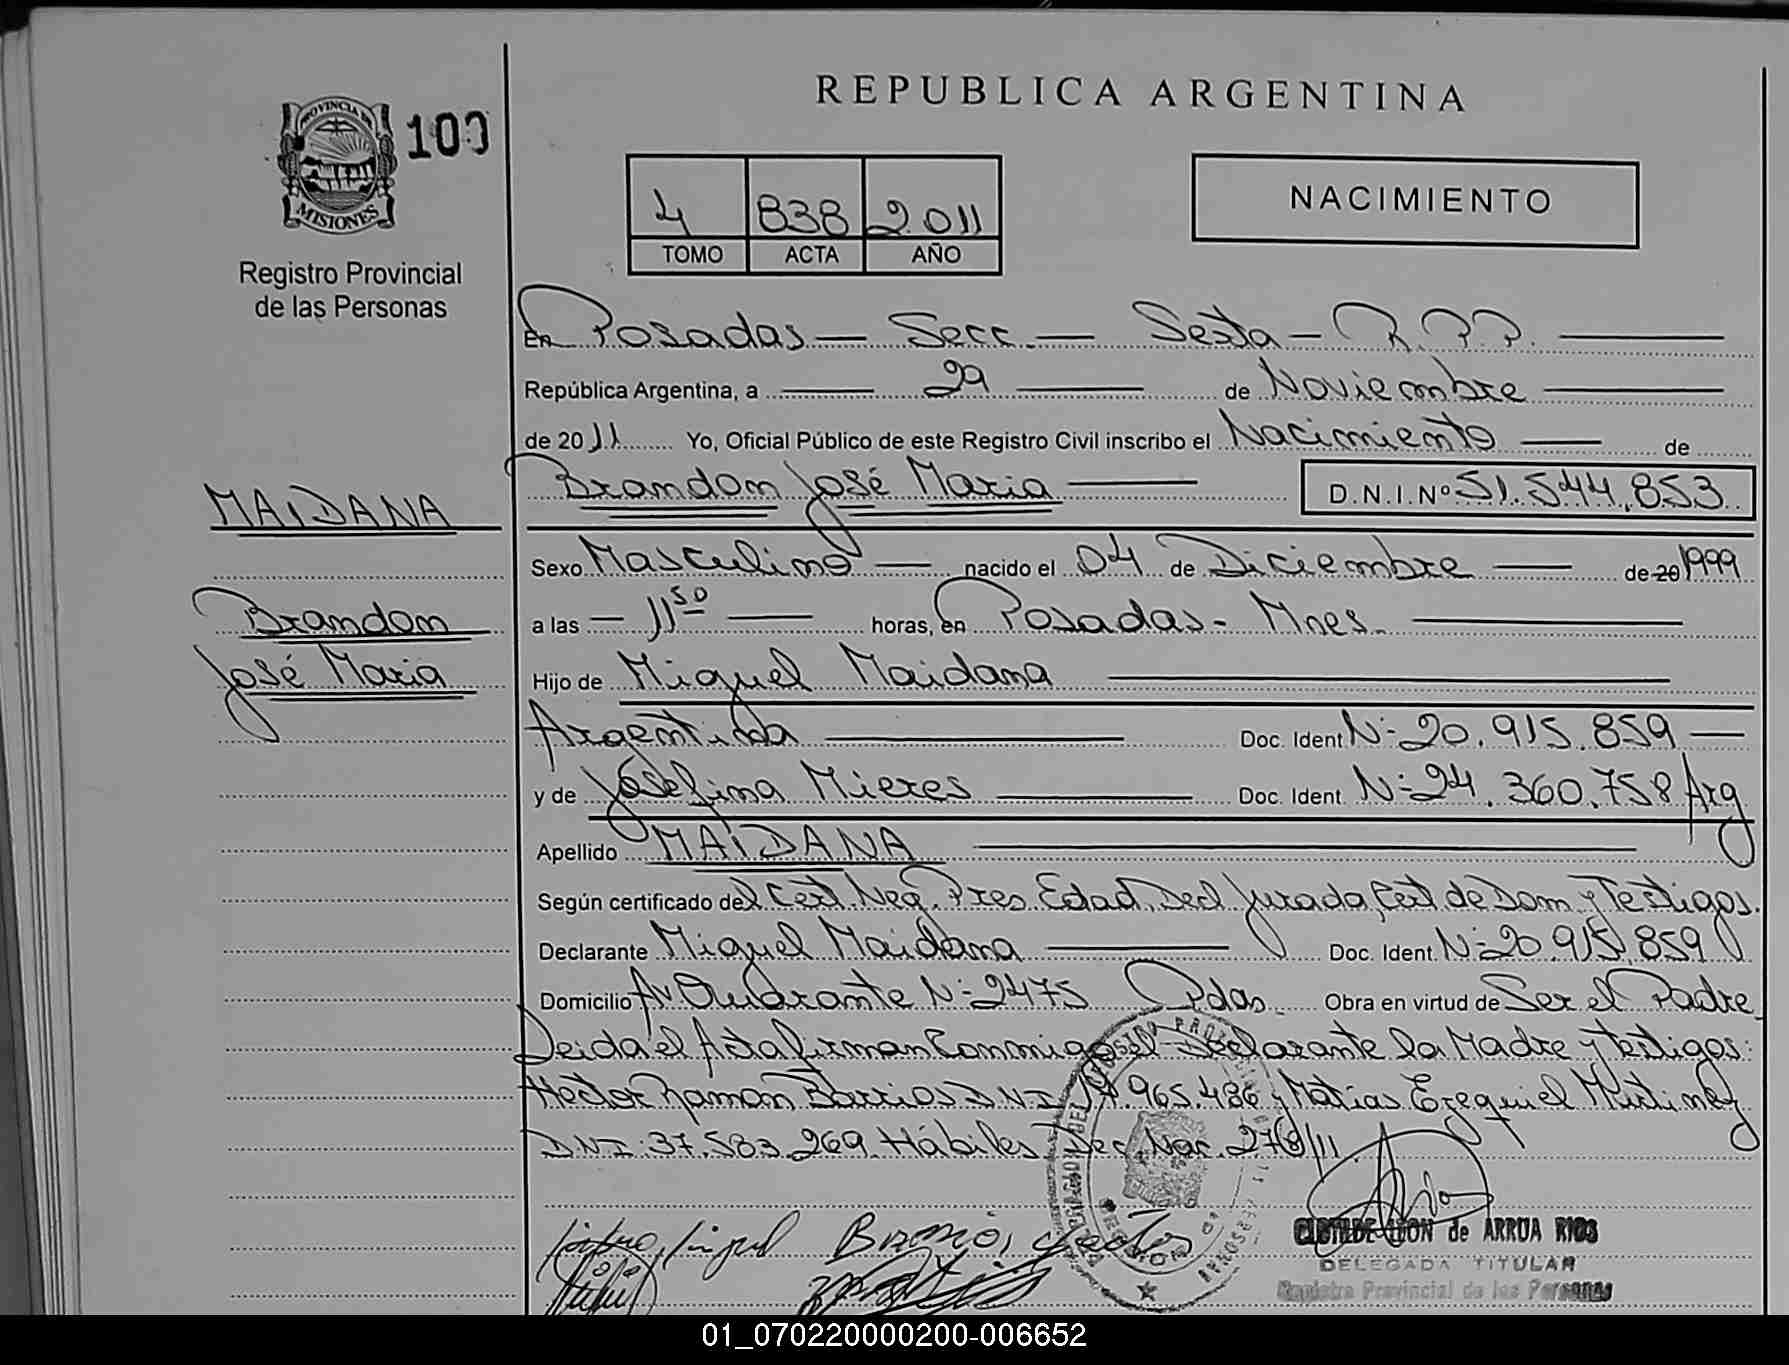 REPUBLICA ARGENTINA
PROVINCIA DE
MISIONES
100
Registro Provincial
de las Personas
4 838 2.011
TOMO ACTA AÑO
NACIMIENTO
En Posadas — Secc. — Sexta — R.P.P. —
República Argentina, a — 29 — de Noviembre —
de 2011 Yo, Oficial Público de este Registro Civil inscribo el Nacimiento — de
Brandon José Maria — D.N.I.Nº 51.544.853
MAIDANA
Sexo Masculino — nacido el 04 de Diciembre — de 20 1999
Brandon
a las — 11 50 — horas, en Posadas - Mnes. —
José Maria
Hijo de Miguel Maidana —
Argentina — Doc. Ident. Nº 20.915.859 —
y de Josefina Mieres — Doc. Ident. Nº 24.360.758 Arg
Apellido MAIDANA —
Según certificado del Cert. Neg. Pres. Edad, Decl Jurada, Cert. de Dom y Testigos.
Declarante Miguel Maidana — Doc. Ident. Nº 20.915.859
Domicilio Av. Quadrante Nº 2475 Pdas. Obra en virtud de Ser el Padre
Leida el Acta firman Conmigo el Declarante la Madre y testigos:
Hector Ramon Barrios D.N.I. 965.486 y Matias Ezequiel
D.N.I. 37.583.269 Hábiles Dec. Nac. 278/11
CLOTILDE LEON de ARRUA RIOS
DELEGADA TITULAR
Registro Provincial de las Personas
01_070220000200-006652